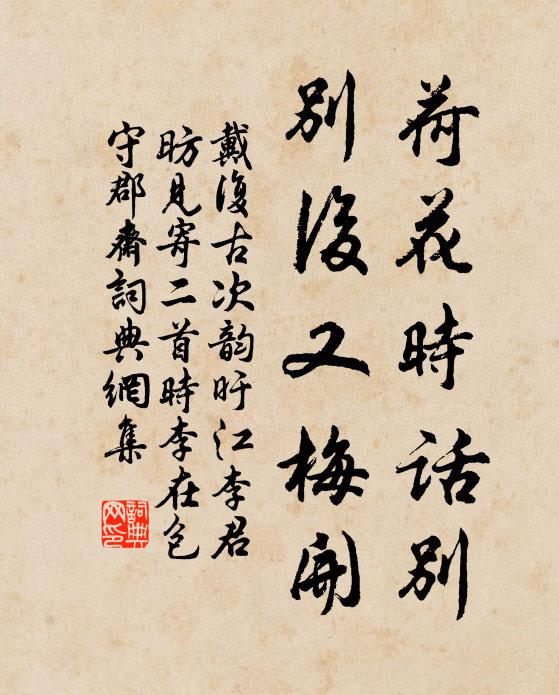 荷花時話別
別後又梅開
戴復古次韵旴江李君
昉見寄二首時李在包
守郡齋詞典網集
詞典网印